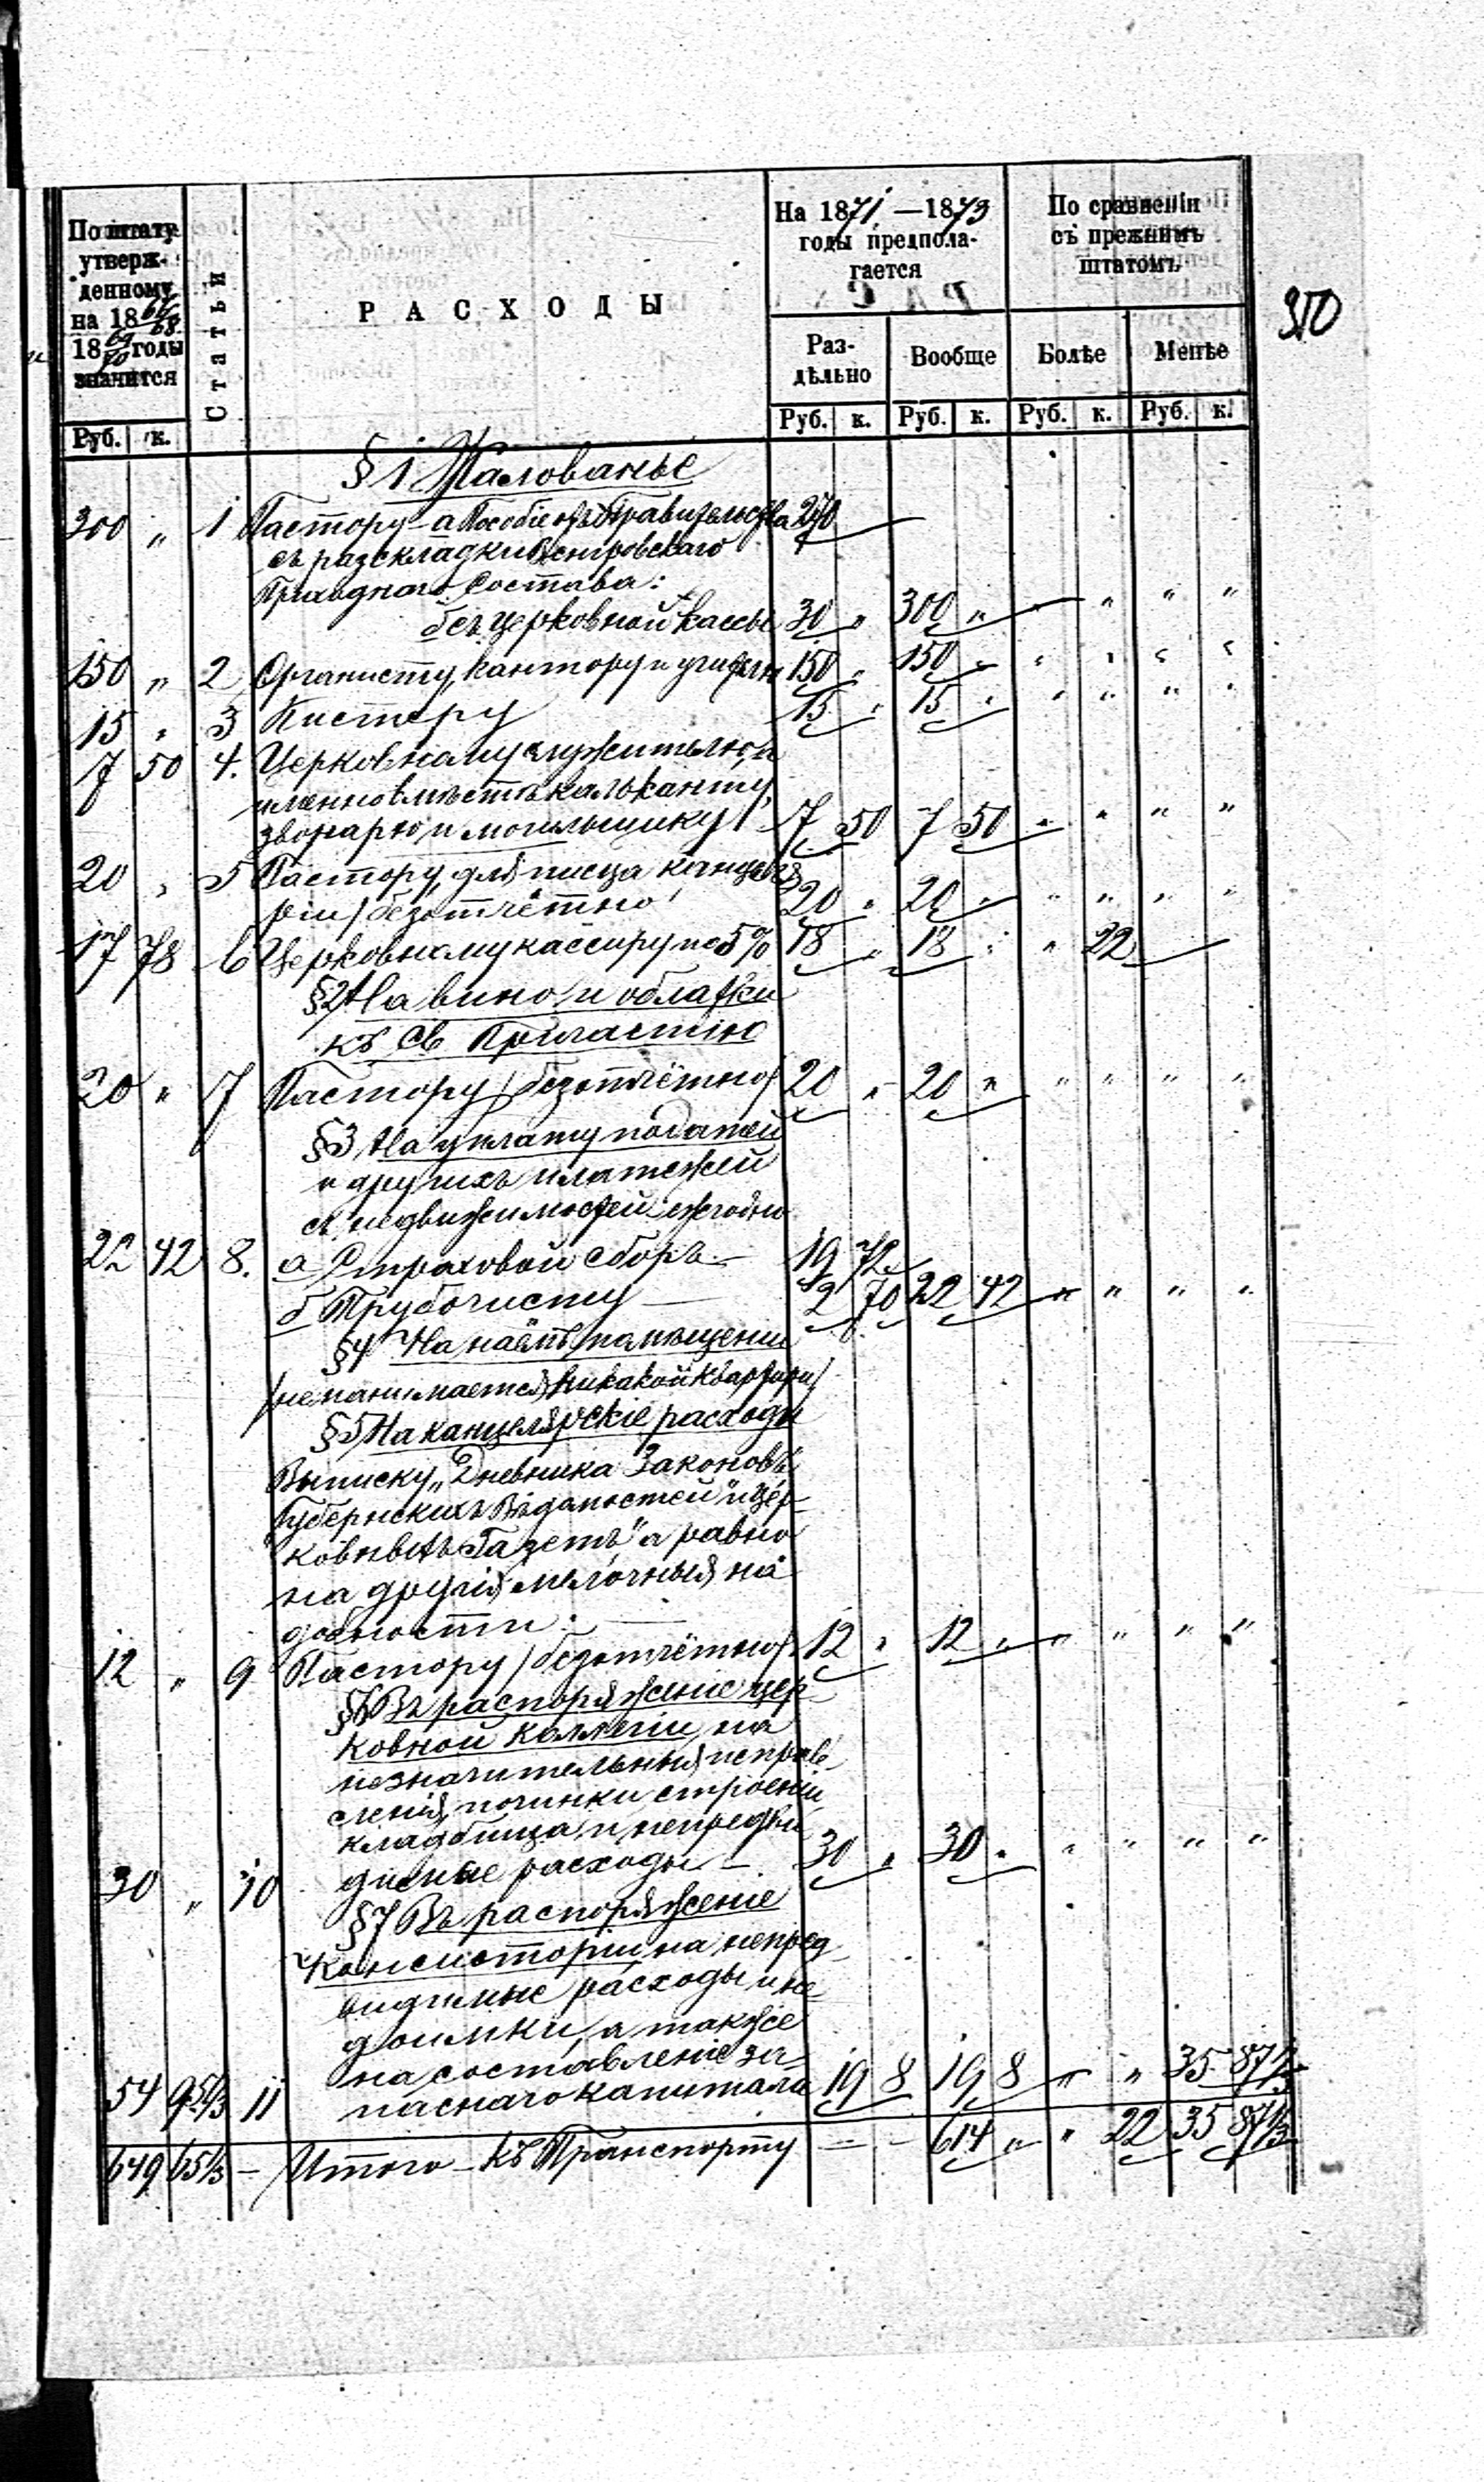 По штату утверж- денному на 18 66/68 18 69/70 годы значится
Статьи
РАСХОДЫ
На 1871 —1873 годы предпола- гается
По сравненiи съ прежнимъ штатомъ
350
Раз- дѣльно
Вообще
Болѣе
Менѣе
Руб. к.
Руб. к. Руб. к. Руб. к. Руб. к.
§ 1 Жалованье
300 „ 1 Пастору – а Пособiе отъ Правительства 270
съ разскладки Венгровскаго
Приходнаго Состава:
б съ церковной кассы 30 „ 300 „ „ „ „ „
150 „ 2 Органисту, кантору и учителю 150 „ 150 „ „ „ „ „
15 „ 3 Кистеру 15 „ 15 „ „ „ „ „
7 50 4. Церковному служителю, а
именно вмѣстѣ калькантy,
звонарю и могильщику 7 50 7 50 „ „ „ „
20 „ 5 Пастору, для писца канцеля
рiи / безотчётно 20 „ 20 „ „ „ „ „
17 78 6 Церковному кассиру по 5% 18 „ 18 „ „ 22
§2 На вино и облатки
къ Св. Причастiю
20 „ 7 Пастору / безотчётно / 20 „ 20 „ „ „ „ „
§3 На уплату податей
и другихъ платежей
съ недвижимостей ежегодно
22 42 8. а Страховой сборъ — 19 72
б Трубочисту — 2 70 22 42 „ „ „ „
§4 На наёмъ помѣщенiи
/ не нанимается никакой квартиры /
§5 На канцелярскiе расходы
Выписку „Дневника Законовъ
Губернскихъ Вѣдомостей" и „Цер-
ковныхъ Газетъ" а равно
на другiя мелочныя на
добности. —
12 „ 9 Пастору / безотчётно / 12 „ 12 „ „ „ „ „
§6 Въ распоряженiе цер-
ковной коллегiи, на
незначительныя исправ
ленiя, починки строенiи
кладбища и непредви
30 „ 10 димые расходы – 30 „ 30 „ „ „ „ „
§7 Въ распоряженiе
Консисторiи на непред
видимые расходы и не-
доимки, а также
на составленiе за-
54 95⅓ 11 паснаго капитала 19 8 19 8 „ „ 35 87⅓
649 65⅓ – Итого – къ Транспорту — – 614 „ „ 22 35 87⅓